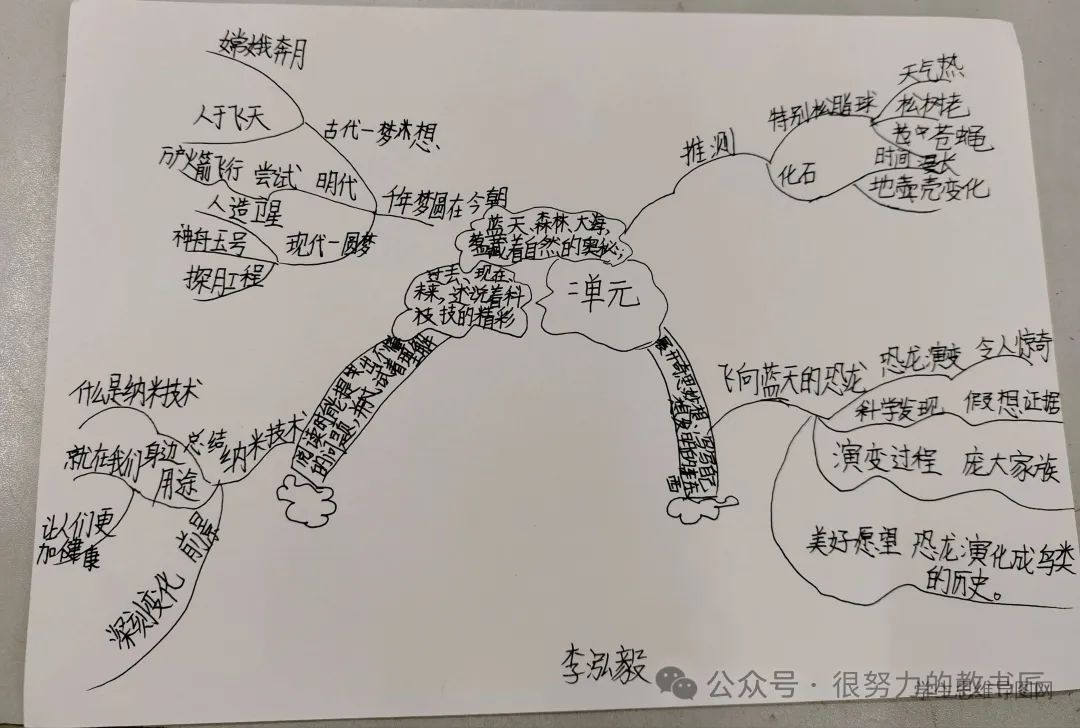 嫦娥奔月
人于飞天
古代一梦想
万户火箭飞行 尝试 明代
人造卫星
神舟五号 现代一圆梦
探月工程
千年梦圆在今朝
天气热
特别松脂球 松树老
苍蝇
推测
化石
时间漫长
地壳变化
蓝天、森林、大海,
蕴藏着自然的奥秘;
过去、现在、
未来,述说着科
技的精彩
二单元
阅读时能提出不懂
的问题,并试着解决
飞向蓝天的恐龙 恐龙演变 令人惊奇
科学发现 假想证据
演变过程 庞大家族
美好愿望 恐龙演化成鸟类
的历史。
什么是纳米技术
就在我们身边 总结 纳米技术
用途
让人们更
加健康
前景
深刻变化
李泓毅
公众号·很努力的教书匠
学生思维导图网